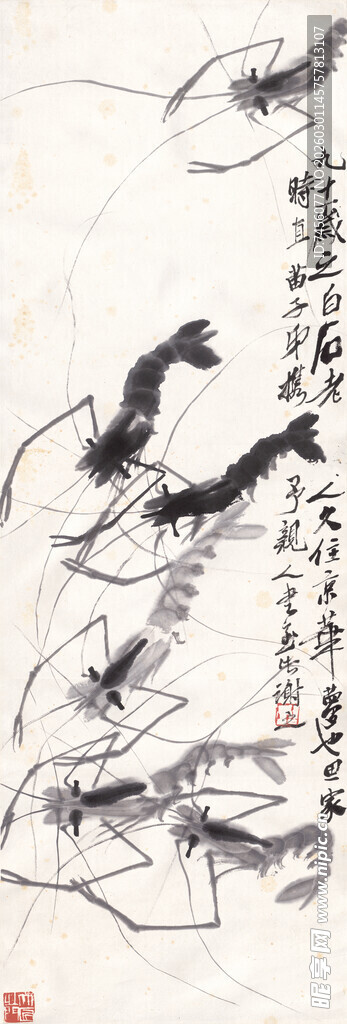 九十歲之白石老人久住京華夢也家
時直苗子攜予親人書出謝
ID:7456177 NO:20260301145757813107
昵享网 www.nipic.cn